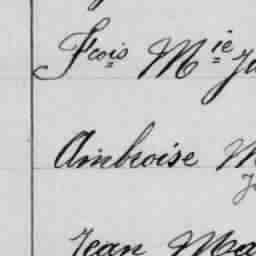 Fçois Mie
Ambroise
Jean Ma